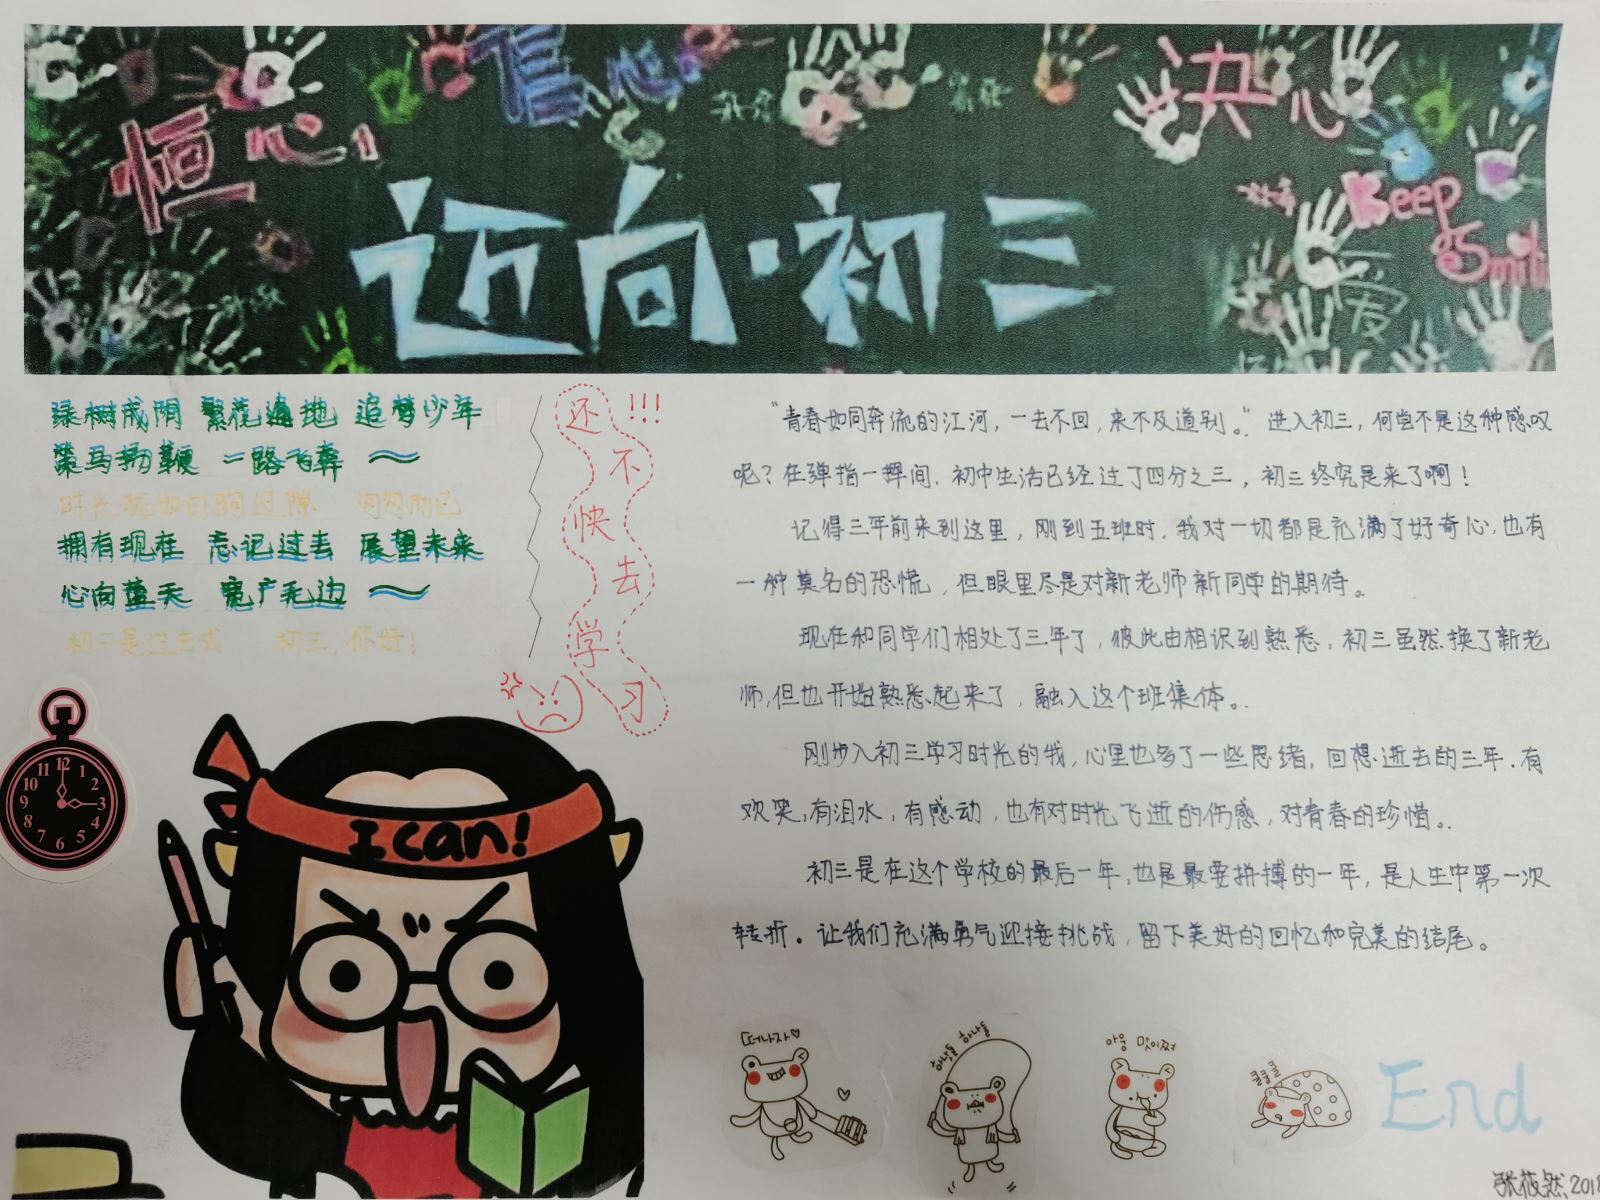 恒心
信心
决心
Keep
Smili
爱
迈向·初三
绿树成阴 繁花遍地 追梦少年
策马扬鞭 一路飞奔
时光犹如白驹过隙 匆匆而已
拥有现在 忘记过去 展望未来
心向蓝天 宽广无边
初二是过去式 初三,你好!
还不快去学习!!!
“青春如同奔流的江河,一去不回,来不及道别。”进入初三,何尝不是这种感叹
呢?在弹指一挥间,初中生活已经过了四分之三,初三终究是来了啊!
记得三年前来到这里,刚到五班时,我对一切都是充满了好奇心,也有
一种莫名的恐慌,但眼里尽是对新老师新同学的期待。
现在和同学们相处了三年了,彼此由相识到熟悉,初三虽然换了新老
师,但也开始熟悉起来了,融入这个班集体。
刚步入初三学习时光的我,心里也多了一些思绪,回想逝去的三年.有
欢笑,有泪水,有感动,也有对时光飞逝的伤感,对青春的珍惜。
初三是在这个学校的最后一年,也是最要拼搏的一年,是人生中第一次
转折。让我们充满勇气迎接挑战,留下美好的回忆和完美的结尾。
12 1 2 3 4 5 6 7 8 9 10 11
I can!
떠나자♡
하나둘 하나둘
아웅 맛이쪄
쿨쿨쿨
End
张筱然,2018